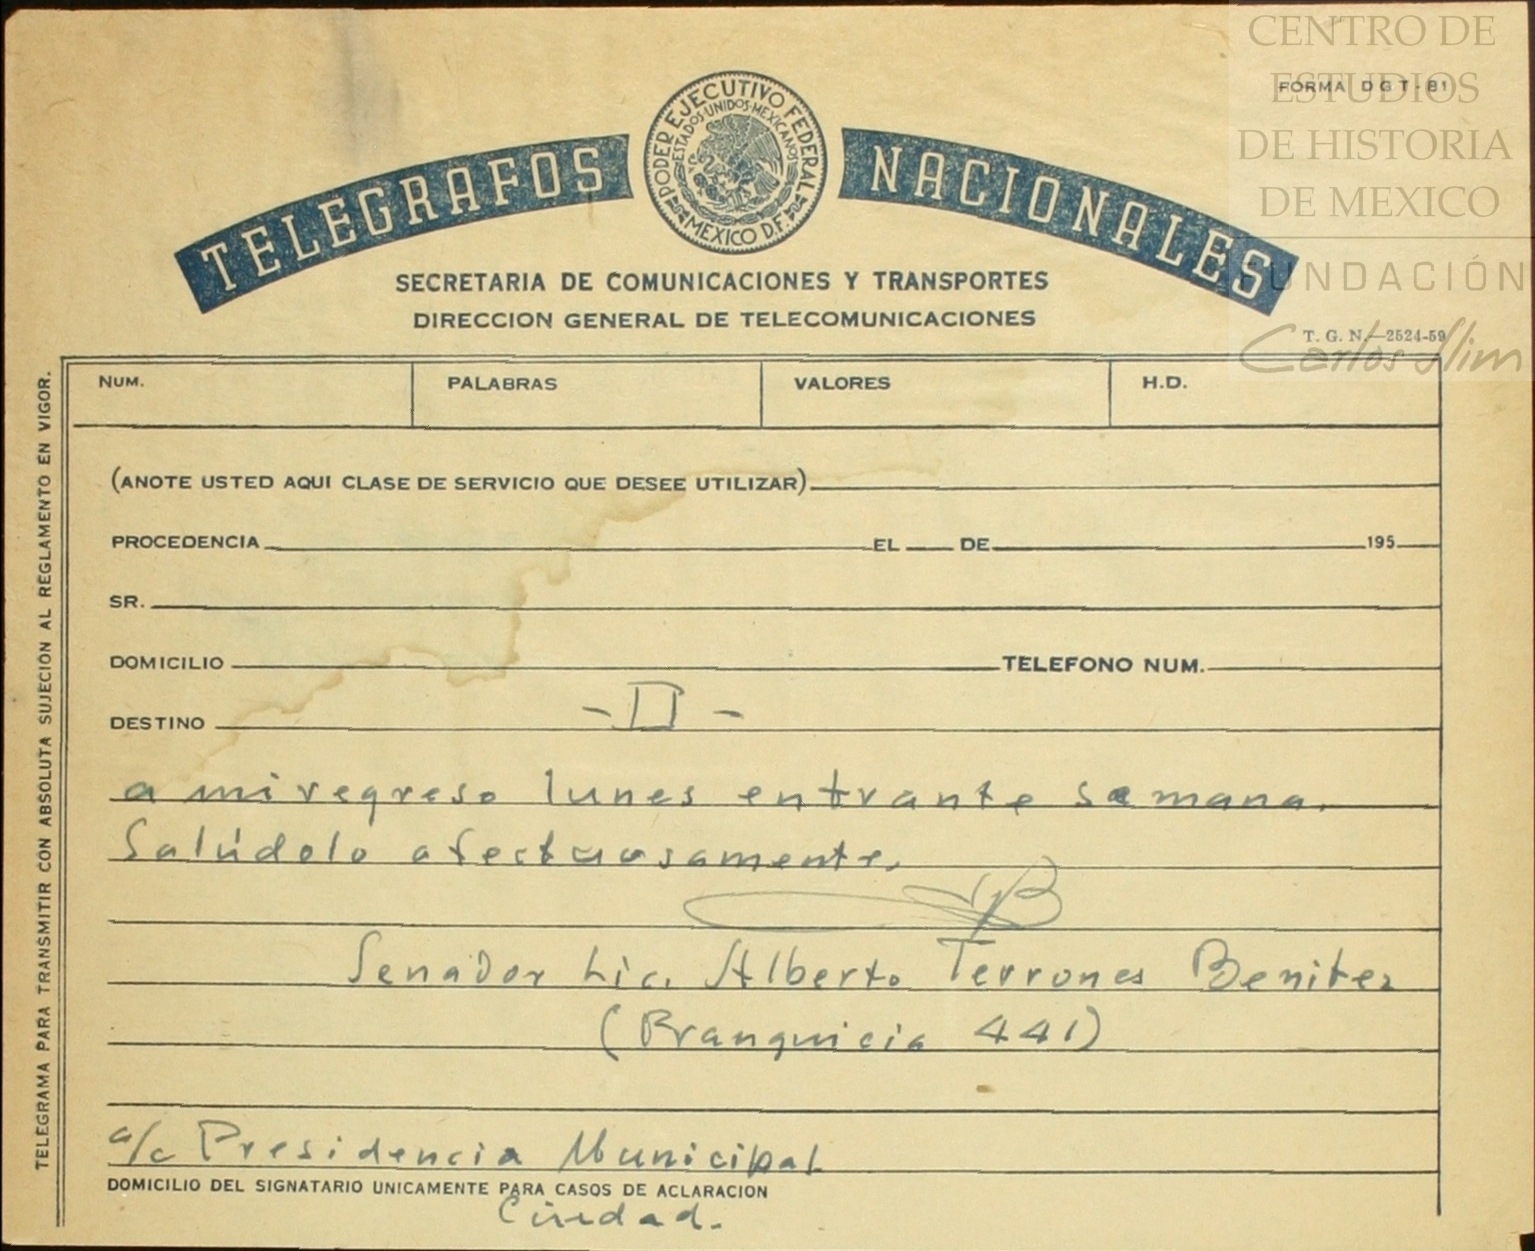 CENTRO DE
ESTUDIOS
DE HISTORIA
DE MEXICO
FUNDACIÓN
Carlos Slim
FORMA DGT-81
TELEGRAFOS NACIONALES
PODER EJECUTIVO FEDERAL
ESTADOS UNIDOS MEXICANOS
MEXICO D.F.
SECRETARIA DE COMUNICACIONES Y TRANSPORTES
DIRECCION GENERAL DE TELECOMUNICACIONES
T. G. N.—2524-59
NUM. PALABRAS VALORES H.D.
(ANOTE USTED AQUI CLASE DE SERVICIO QUE DESEE UTILIZAR)
PROCEDENCIA EL DE 195
SR.
DOMICILIO TELEFONO NUM.
DESTINO - II -
a mi regreso lunes entrante semana.
Salúdolo afectuosamente.
Senador Lic. Alberto Terrones Benitez
(Franquicia 441)
a/c Presidencia Municipal
DOMICILIO DEL SIGNATARIO UNICAMENTE PARA CASOS DE ACLARACION
Ciudad.
TELEGRAMA PARA TRANSMITIR CON ABSOLUTA SUJECION AL REGLAMENTO EN VIGOR.